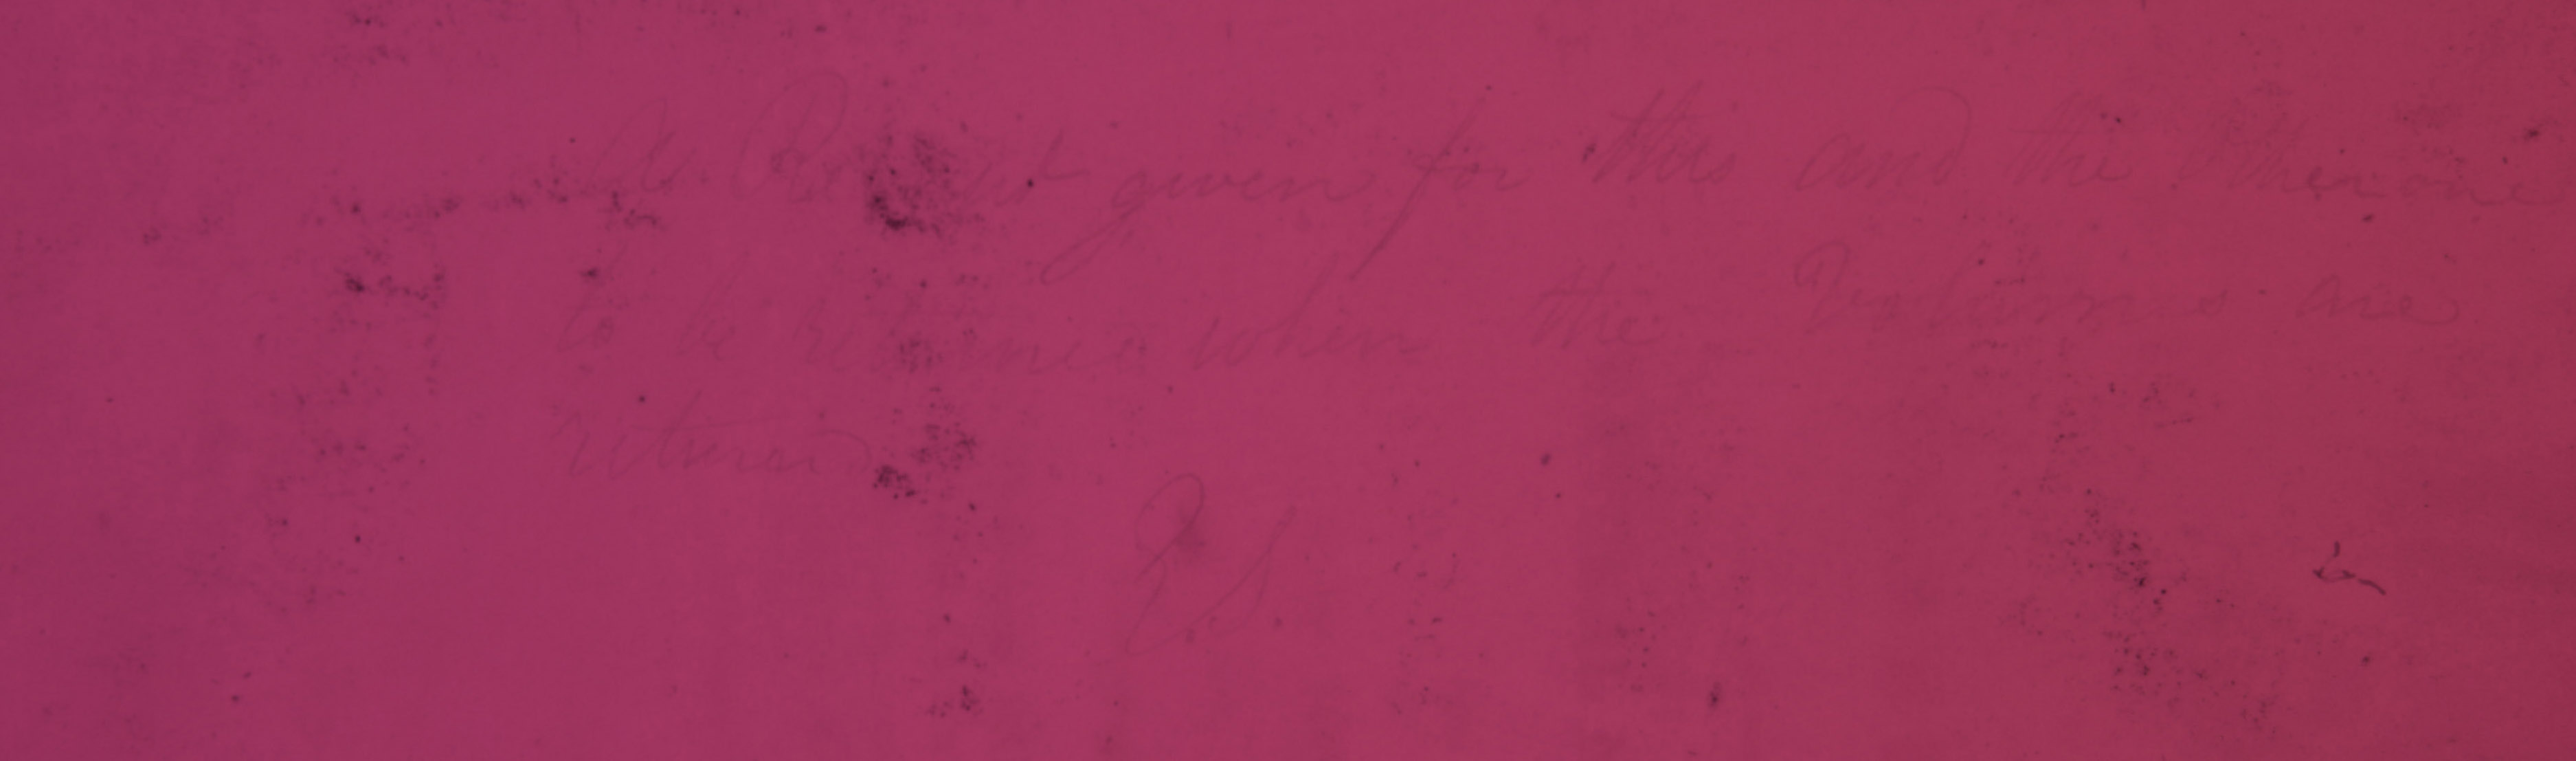 A Receipt given for this and the other one
to be returned when the Volumes are
returned